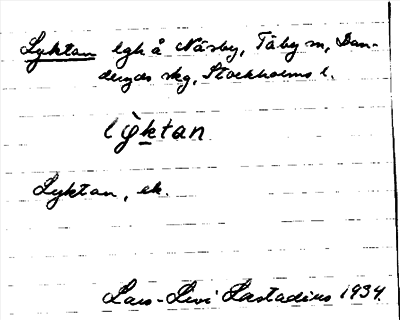 Lyktan lgh å Näsby, Täby sn, Dan-
deryds skg, Stockholms l.
lỳktan
Lyktan, ek.
Lars-Levi Læstadius 1934.